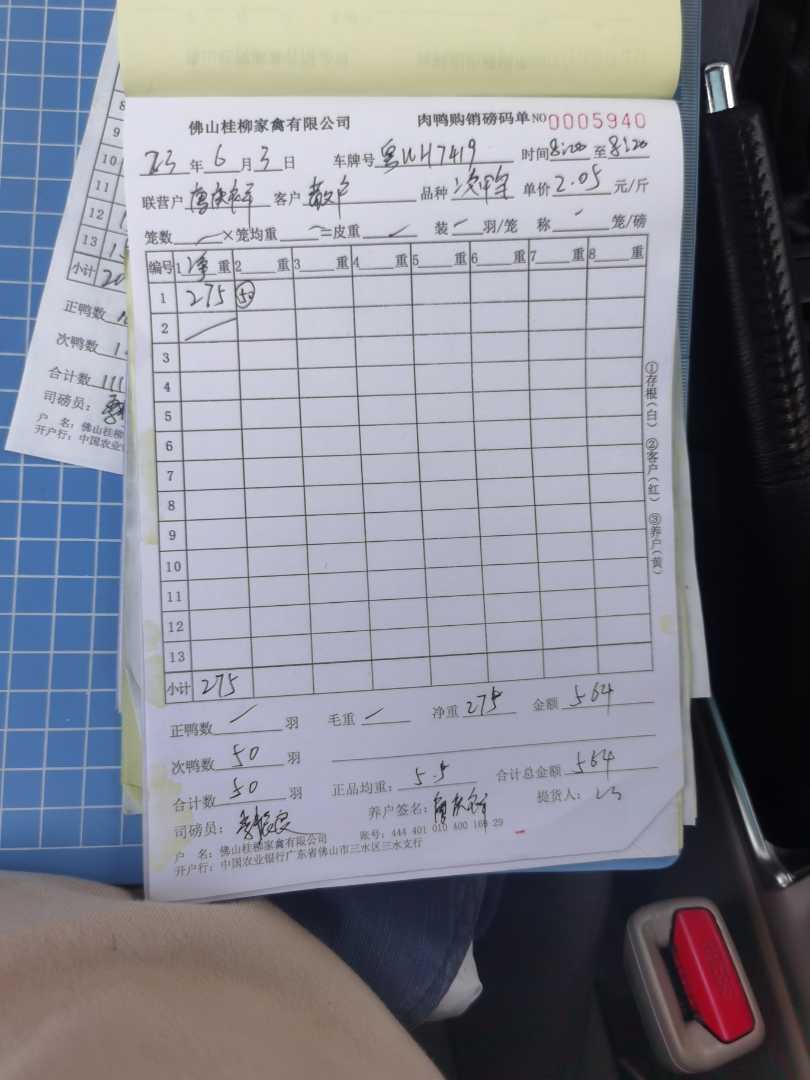 佛山桂柳家禽有限公司 肉鸭购销磅码单 NO 0005940
23 年 6 月 3 日 车牌号 粤WH7419 时间 8:00 至 8:20
联营户 客户 散户 品种 单价 2.05 元/斤
笼数 ×笼均重 =皮重 装 羽/笼 称 笼/磅
编号 1 净 重 2 重 3 重 4 重 5 重 6 重 7 重 8 重
1 275 50
2
3
4
5
6
7
8
9
10
11
12
13
小计 275
正鸭数 羽 毛重 净重 275 金额 564
次鸭数 50 羽
合计数 50 羽 正品均重: 5.5 合计总金额 564
司磅员: 养户签名: 提货人:
户 名: 佛山桂柳家禽有限公司 账号: 444 401 010 400 168 29
开户行: 中国农业银行广东省佛山市三水区三水支行
①存根(白) ②客户(红) ③养户(黄)
8
9
10
11
12
13
小计
正鸭数
次鸭数
合计数 111
司磅员:
户 名: 佛山桂柳
开户行: 中国农业